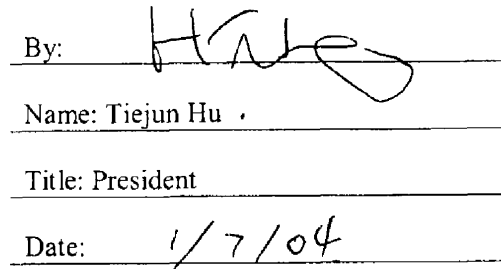 By:
Name: Tiejun Hu
Title: President
Date: 1/7/04